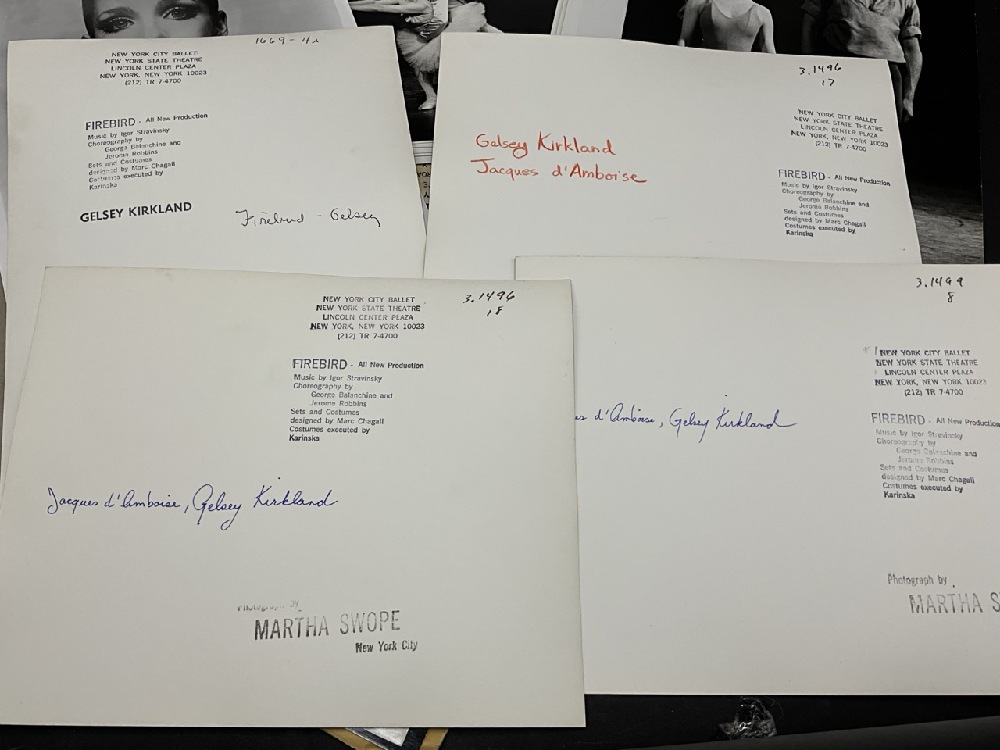 1669-4a
NEW YORK CITY BALLET
NEW YORK STATE THEATRE
LINCOLN CENTER PLAZA
NEW YORK, NEW YORK 10023
(212) TR 7-4700
FIREBIRD - All New Production
Music by Igor Stravinsky
Choreography by
George Balanchine and
Jerome Robbins
Sets and Costumes
designed by Marc Chagall
Costumes executed by
Karinska
GELSEY KIRKLAND
Firebird - Gelsey
3.1496
17
NEW YORK CITY BALLET
NEW YORK STATE THEATRE
LINCOLN CENTER PLAZA
NEW YORK, NEW YORK 10023
(212) TR 7-4700
Gelsey Kirkland
Jacques d'Amboise
FIREBIRD - All New Production
Music by Igor Stravinsky
Choreography by
George Balanchine and
Jerome Robbins
Sets and Costumes
designed by Marc Chagall
Costumes executed by
Karinska
3.1496
18
NEW YORK CITY BALLET
NEW YORK STATE THEATRE
LINCOLN CENTER PLAZA
NEW YORK, NEW YORK 10023
(212) TR 7-4700
FIREBIRD - All New Production
Music by Igor Stravinsky
Choreography by
George Balanchine and
Jerome Robbins
Sets and Costumes
designed by Marc Chagall
Costumes executed by
Karinska
Jacques d'Amboise, Gelsey Kirkland
Photograph by
MARTHA SWOPE
New York City
3.1499
8
NEW YORK CITY BALLET
NEW YORK STATE THEATRE
LINCOLN CENTER PLAZA
NEW YORK, NEW YORK 10023
(212) TR 7-4700
d'Amboise, Gelsey Kirkland
FIREBIRD - All New Production
Music by Igor Stravinsky
Choreography by
George Balanchine and
Jerome Robbins
Sets and Costumes
designed by Marc Chagall
Costumes executed by
Karinska
Photograph by
MARTHA S